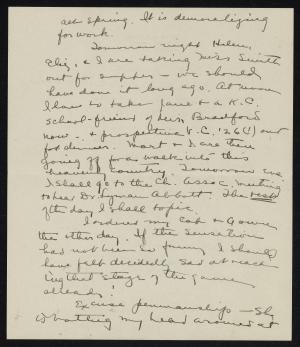 all spring. It is demoralizing
for work.
Tomorrow night Helen,
Eliz, & I are taking Miss Smith
out for supper – we should
have done it long ago. At noon
I have to take Jane & a K.C.
school-friend of hers, Bradford
now, & prospective V.C. (264) out
for dinner. Mart & I are then
going off for a walk into this
heavenly country. Tomorrow eve.
I shall go to the Ch. Assoc. meeting
to hear Dr. Lyman Abbott. The rest
of the day I shall topic.
I ordered my Cap & Gown
the other day. If the sensation
had not been so funny I should
have felt decidedly sad at reach
ing that stage of the game
already!
Excuse penmanship – She
is battling my head around at